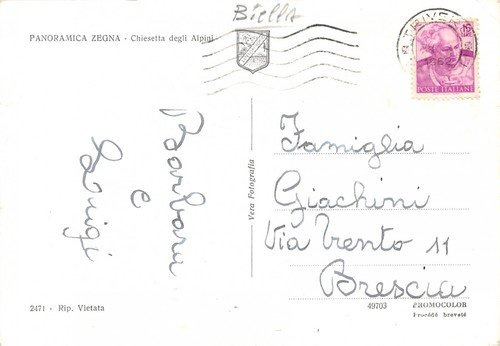 Biella
PANORAMICA ZEGNA - Chiesetta degli Alpini
TRIVERO
1962
POSTE ITALIANE
Barbara
e
Luigi
Vera Fotografia
Famiglia
Giachini
Via Trento 11
Brescia
2471 - Rip. Vietata
49703 PROMOCOLOR
Procédé breveté